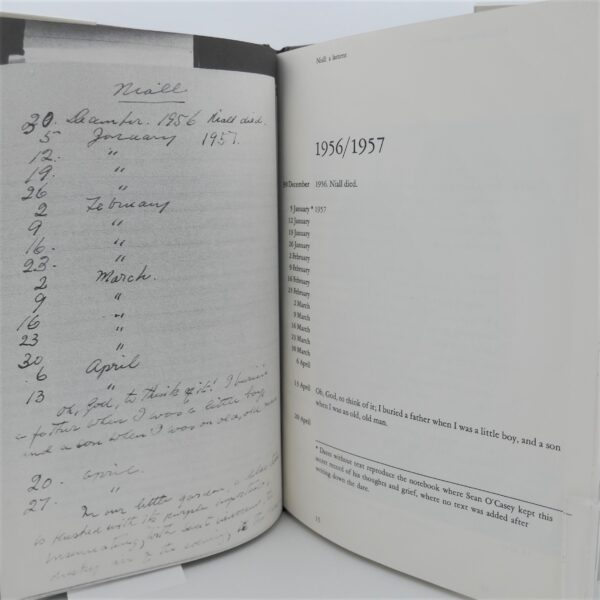 Niall
30. December. 1956 Niall died.
5 January 1957.
12. "
19. "
26 "
2 February
9 "
16. "
23. "
2 March.
9 "
16 "
23 "
30 "
6 April
13 "
Oh, God, to think of it! I buried
a father when I was a little boy,
and a son when I was an old, old man.
20. April.
27. "
In our little garden, a
is flushed with its purple
Niall: a lament
1956/1957
30 December 1956. Niall died.
5 January * 1957
12 January
19 January
26 January
2 February
9 February
16 February
23 February
2 March
9 March
16 March
23 March
30 March
6 April
13 April
Oh, God, to think of it; I buried a father when I was a little boy, and a son
when I was an old, old man.
20 April
* Dates without text reproduce the notebook where Sean O'Casey kept this
secret record of his thoughts and grief, where no text was added after
writing down the date.
15